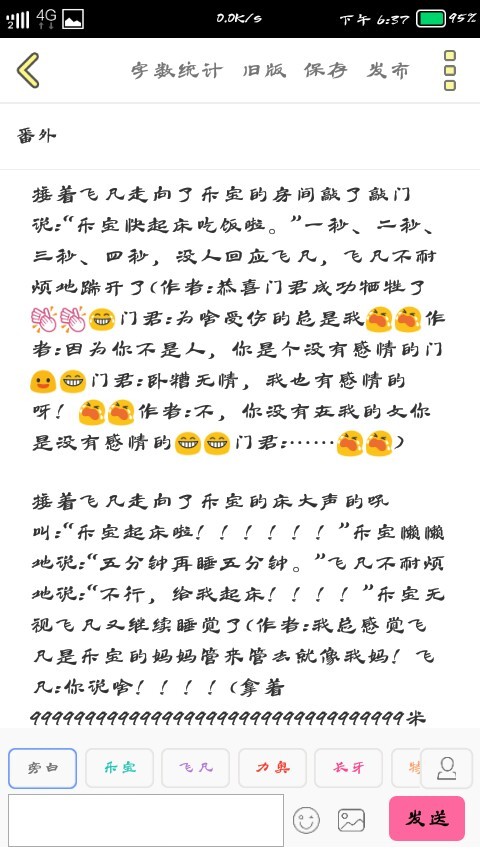 2 4G 0.0K/s 下午 6:37 95%
字数统计 旧版 保存 发布
番外
接着飞凡走向了乐宝的房间敲了敲门
说:“乐宝快起床吃饭啦。”一秒、二秒、
三秒、四秒，没人回应飞凡，飞凡不耐
烦地踹开了(作者:恭喜门君成功牺牲了
👏👏😂门君:为啥受伤的总是我😭😭作
者:因为你不是人，你是个没有感情的门
😃😂门君:卧槽无情，我也有感情的
呀！😭😭作者:不，你没有在我的文你
是没有感情的😂😂门君:……😭😭)
接着飞凡走向了乐宝的床大声的吼
叫:“乐宝起床啦！！！！！！”乐宝懒懒
地说:“五分钟再睡五分钟。”飞凡不耐烦
地说:“不行，给我起床！！！！”乐宝无
视飞凡又继续睡觉了(作者:我总感觉飞
凡是乐宝的妈妈管来管去就像我妈！飞
凡:你说啥！！！！(拿着
99999999999999999999999999999999999米
旁白 乐宝 飞凡 力奥 长牙 特
发送